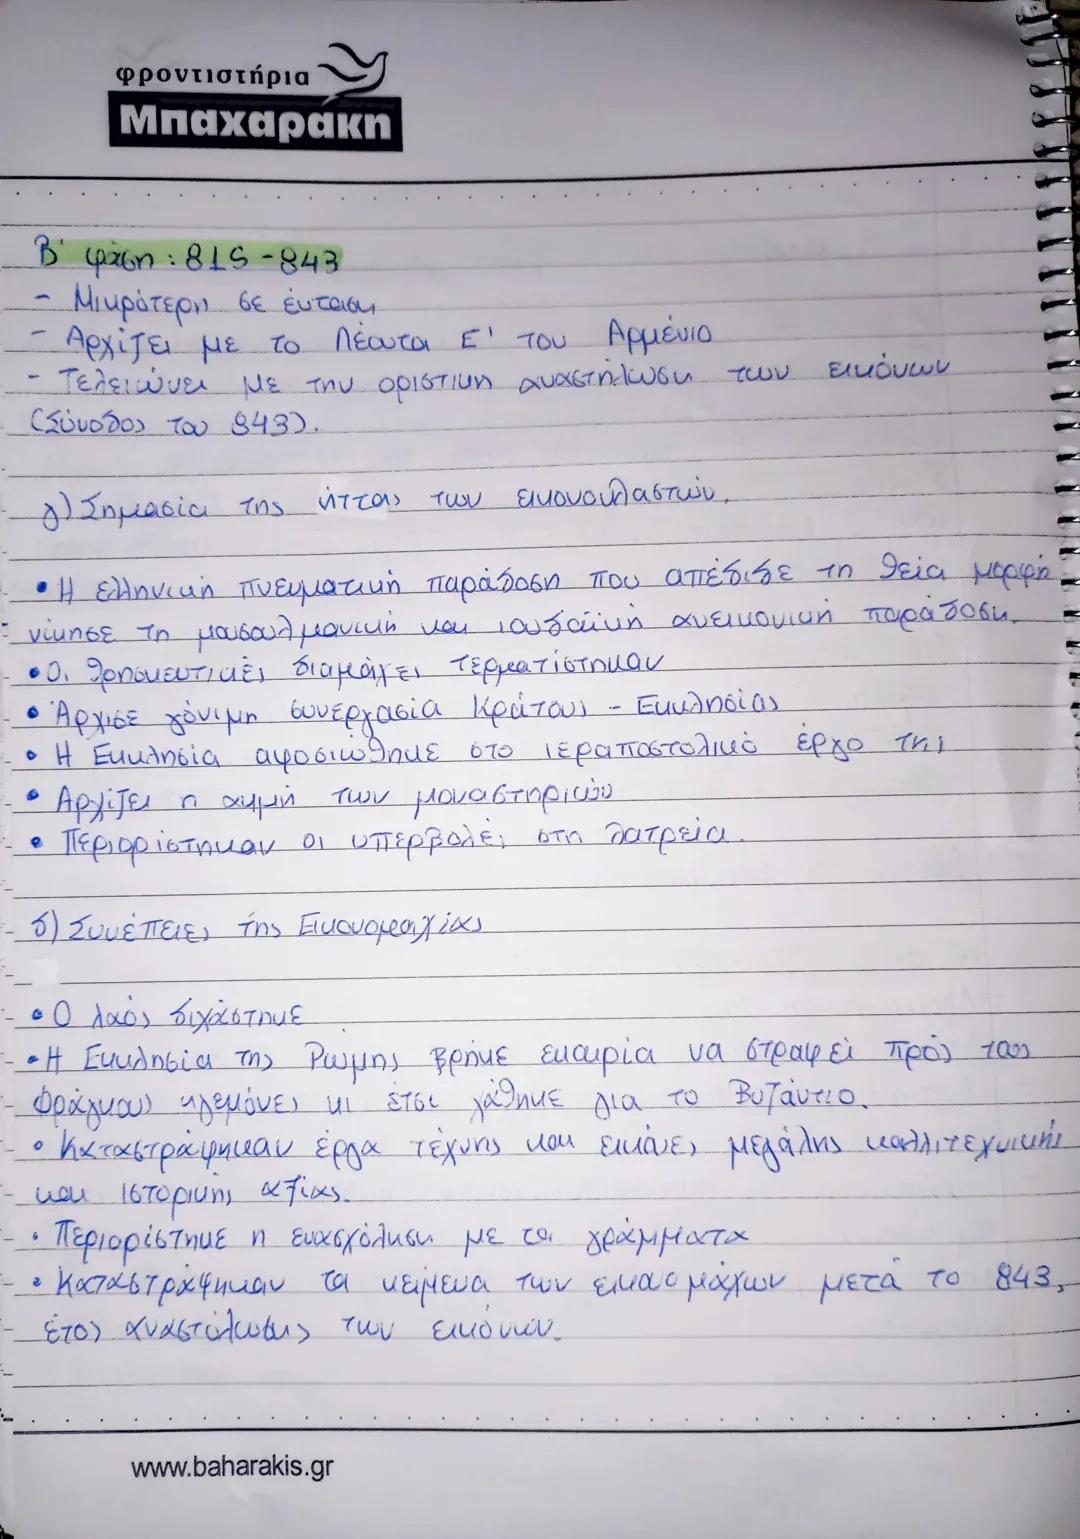 φροντιστήρια
Μπαχαράκη
Β' φάση : 815 - 843
- Μικρότερη σε ένταση
- Αρχίζει με το Λέοντα Ε' του Αρμένιο
- Τελειώνει με την οριστική αναστήλωση των εικόνων
(Σύνοδος του 843).
γ) Σημασία της ήττας των εικονοκλαστών.
• Η ελληνική πνευματική παράδοση που απέδιδε τη θεία μορφή
νίκησε τη μουσουλμανική και ιουδαϊκή ανεικονική παράδοση.
• Οι θρησκευτικές διαμάχες τερματίστηκαν
• Άρχισε γόνιμη συνεργασία Κράτους - Εκκλησίας
• Η Εκκλησία αφοσιώθηκε στο ιεραποστολικό έργο της
• Αρχίζει η ακμή των μοναστηριών
• Περιορίστηκαν οι υπερβολές στη λατρεία.
δ) Συνέπειες της Εικονομαχίας
• Ο λαός διχάστηκε
• Η Εκκλησία της Ρώμης βρήκε ευκαιρία να στραφεί προς τους
Φράγκους ηγεμόνες κι έτσι χάθηκε για το Βυζάντιο.
• Καταστράφηκαν έργα τέχνης και εικόνες μεγάλης καλλιτεχνικής
και ιστορικής αξίας.
• Περιορίστηκε η ενασχόληση με τα γράμματα
• Καταστράφηκαν τα κείμενα των εικονομάχων μετά το 843,
έτος αναστύλωσης των εικόνων.
www.baharakis.gr